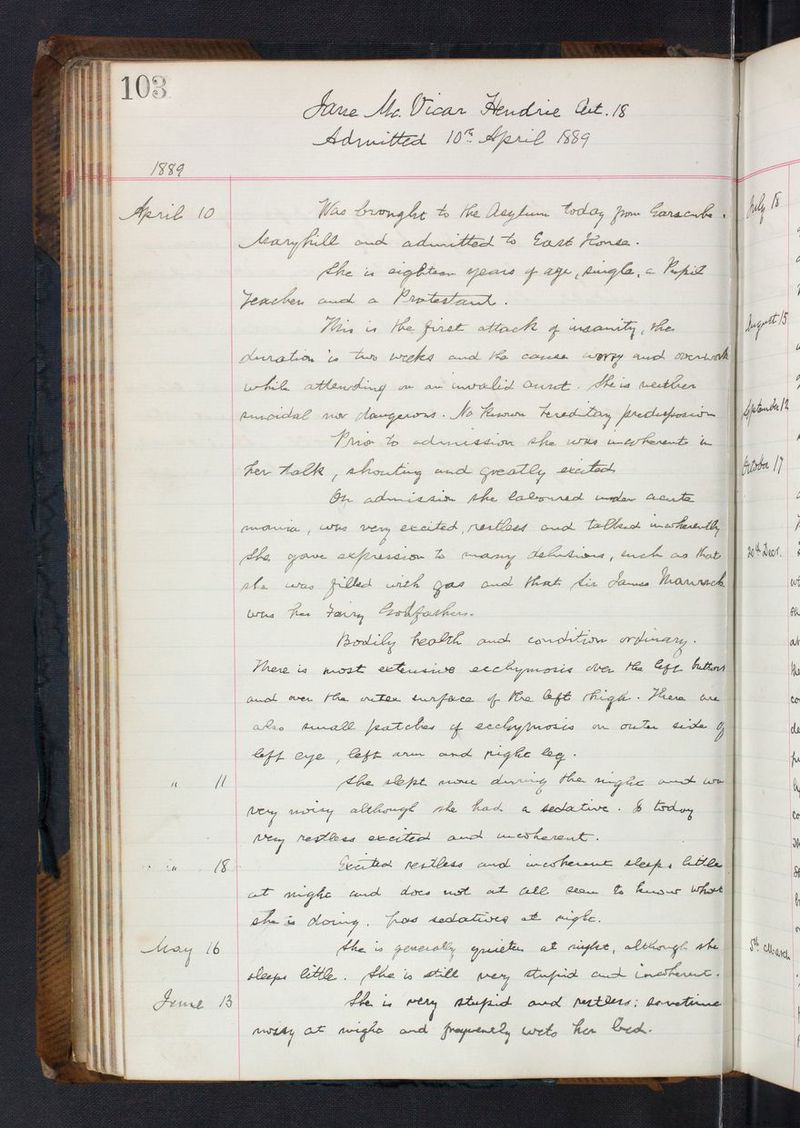 103
Jane Mc. Vicar Hendrie Aet. 18
Admitted 10th April 1889
1889
April 10 Was brought to the Asylum today from Garscube.
Maryhill and admitted to East House.
She is eighteen years of age, single, a Pupil
Teacher and a Protestant.
This is the first attack of insanity, the
duration is two weeks and the cause worry and overwork
while attending on an invalid aunt. She is neither
suicidal nor dangerous. No known hereditary predisposition
Prior to admission she was incoherent in
her talk, shouting and greatly excited
On admission she laboured under acute
mania, was very excited, restless and talked incoherently
She gave expression to many delusions, such as that
she was filled with gas and that Sir James
was her Fairy Godfather.
Bodily health and condition ordinary.
There is most extensive ecchymosis over the left buttock
and over the outer surface of the left thigh. There are
also small patches of ecchymosis on outer side of
left eye, left arm and right leg.
" 11 She slept none during the night and was
very noisy although she had a sedative. Is today
very restless excited and incoherent.
" 18 Excited restless and incoherent sleeps little
at night and does not at all seem to know what
she is doing. has sedatives at night.
May 16 She is generally quieter at night, although she
sleeps little. She is still very stupid and incoherent.
June 13 She is very stupid and restless; sometime
noisy at night and frequently wets her bed.
July 18
August 15
September 12
October 17
20th Decr.
5th March